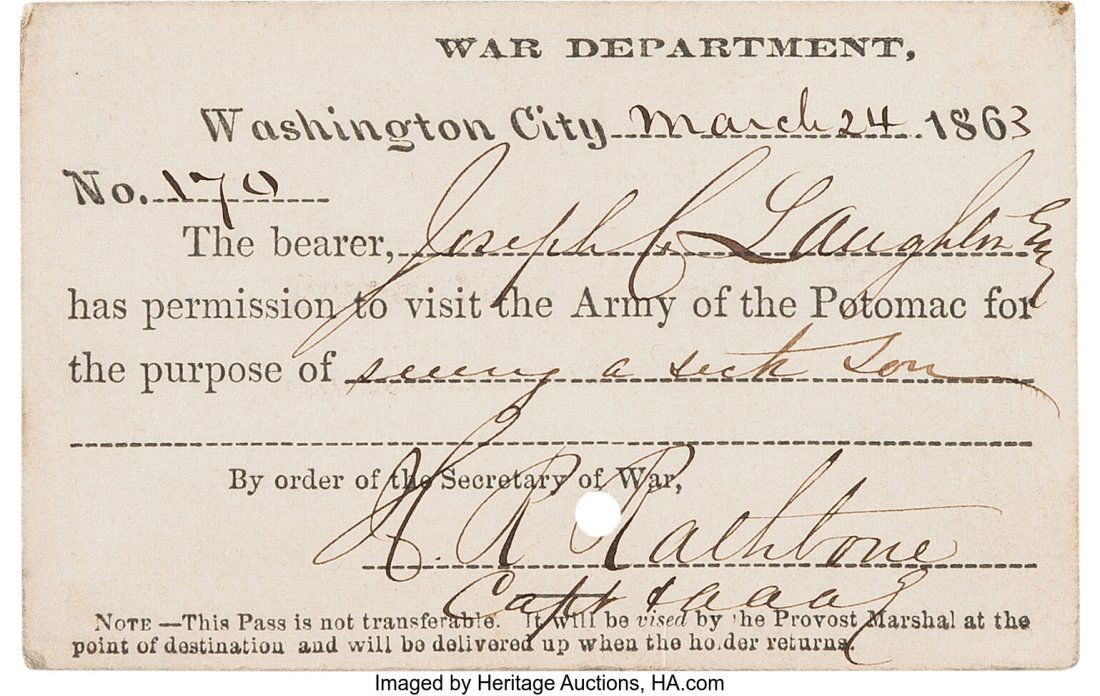 WAR DEPARTMENT,
Washington City March 24 1863
No. 170
The bearer, Joseph C Laughlin Esq
has permission to visit the Army of the Potomac for
the purpose of seeing a sick son
By order of the Secretary of War,
H. R. Rathbone
Capt & aaag
NOTE —This Pass is not transferable. It will be vised by the Provost Marshal at the
point of destination and will be delivered up when the holder returns.
Imaged by Heritage Auctions, HA.com